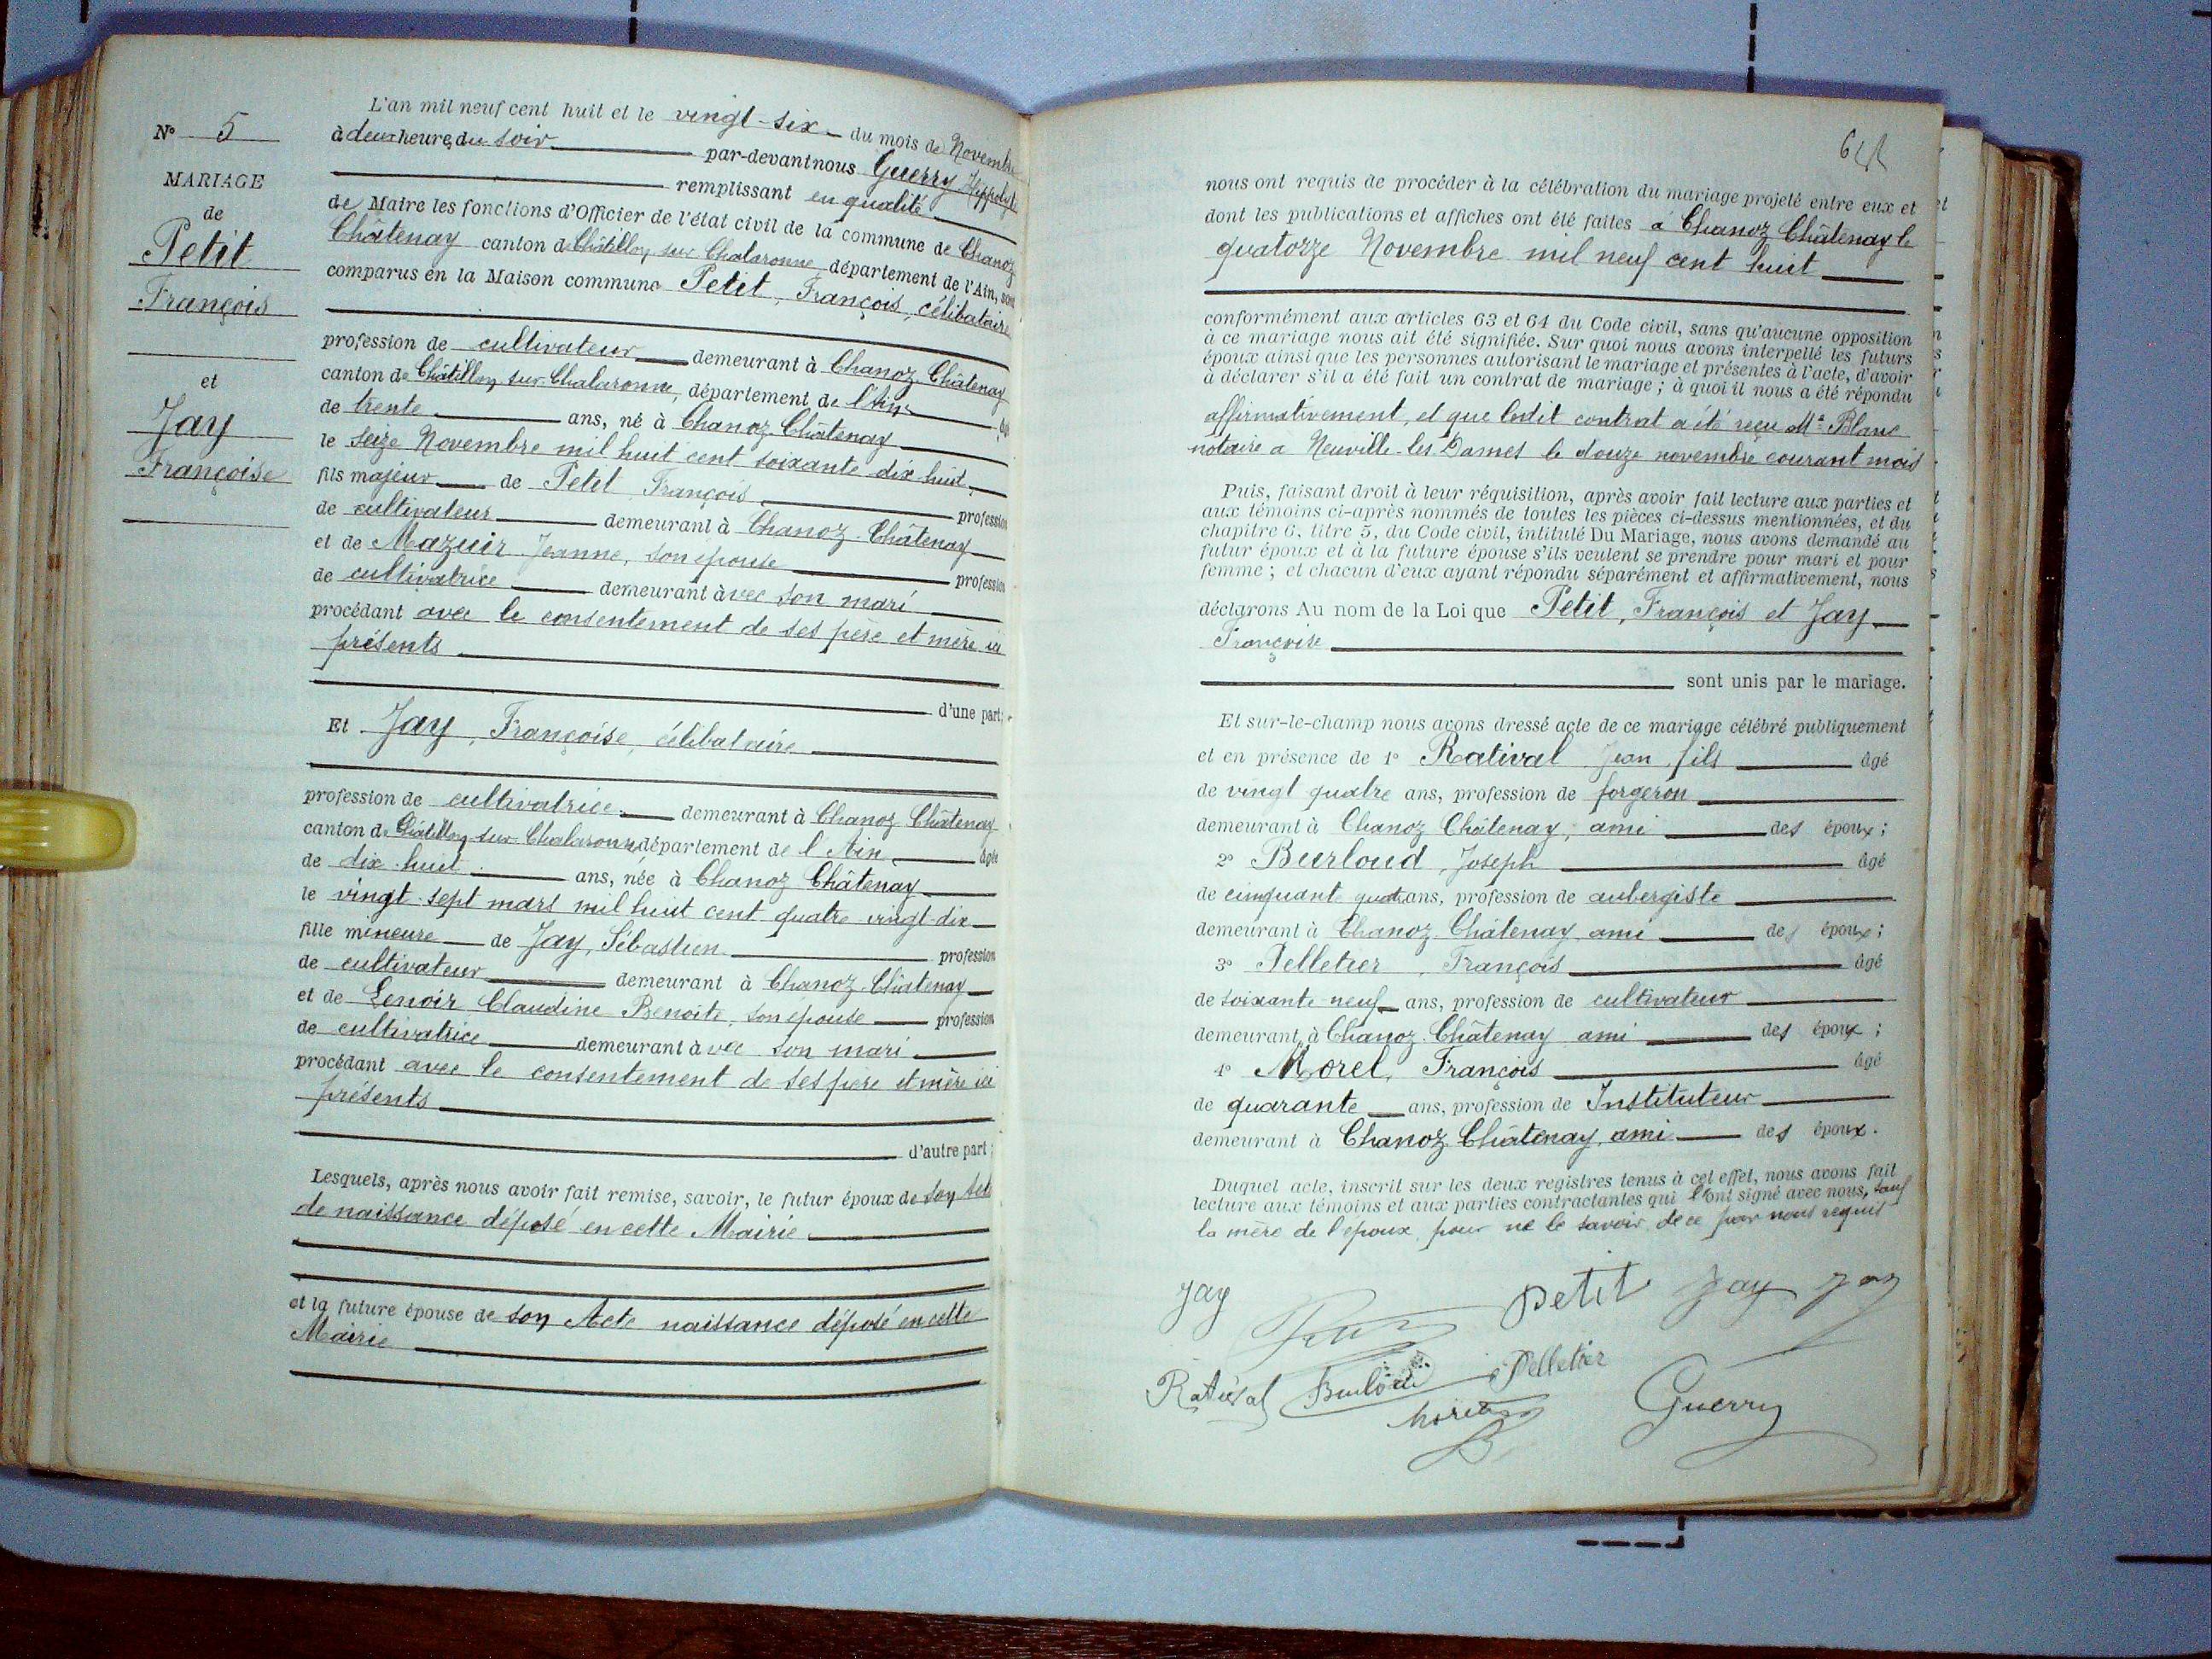 N° 5
MARIAGE
de
Petit
François
et
Jay
Françoise
L'an mil neuf cent huit et le vingt-six du mois de Novembre
à deux heures du soir par-devant nous Guerry Hippolyte
remplissant en qualité
de Maire les fonctions d'Officier de l'état civil de la commune de Chanoz
Châtenay canton de Châtillon sur Chalaronne département de l'Ain, sont
comparus en la Maison commune Petit, François, célibataire
profession de cultivateur demeurant à Chanoz Châtenay
canton de Châtillon sur Chalaronne, département de l'Ain âgé
de trente ans, né à Chanoz Châtenay
le seize Novembre mil huit cent soixante dix huit
fils majeur de Petit François profession
de cultivateur demeurant à Chanoz-Châtenay
et de Mazuir Jeanne, son épouse profession
de cultivatrice demeurant avec son mari
procédant avec le consentement de ses père et mère ici
présents
d'une part;
Et Jay, Françoise, célibataire
profession de cultivatrice demeurant à Chanoz Châtenay
canton de Châtillon sur Chalaronne département de l'Ain âgée
de dix-huit ans, née à Chanoz Châtenay
le vingt-sept mars mil huit cent quatre vingt-dix
fille mineure de Jay, Sébastien profession
de cultivateur demeurant à Chanoz-Châtenay
et de Lenoir Claudine Benoite, son épouse profession
de cultivatrice demeurant avec son mari
procédant avec le consentement de ses père et mère ici
présents
d'autre part;
Lesquels, après nous avoir fait remise, savoir, le futur époux de son Acte
de naissance déposé en cette Mairie
et la future épouse de son Acte naissance déposé en cette
Mairie
nous ont requis de procéder à la célébration du mariage projeté entre eux et
dont les publications et affiches ont été faites à Chanoz Châtenay le
quatorze Novembre mil neuf cent huit
conformément aux articles 63 et 64 du Code civil, sans qu'aucune opposition
à ce mariage nous ait été signifiée. Sur quoi nous avons interpellé les futurs
époux ainsi que les personnes autorisant le mariage et présentes à l'acte, d'avoir
à déclarer s'il a été fait un contrat de mariage ; à quoi il nous a été répondu
affirmativement, et que ledit contrat a été reçu Me Blanc
notaire a Neuville-les-Dames le douze novembre courant mois
Puis, faisant droit à leur réquisition, après avoir fait lecture aux parties et
aux témoins ci-après nommés de toutes les pièces ci-dessus mentionnées, et du
chapitre 6, titre 5, du Code civil, intitulé Du Mariage, nous avons demandé au
futur époux et à la future épouse s'ils veulent se prendre pour mari et pour
femme ; et chacun d'eux ayant répondu séparément et affirmativement, nous
déclarons Au nom de la Loi que Petit, François et Jay
Françoise
sont unis par le mariage.
Et sur-le-champ nous avons dressé acte de ce mariage célébré publiquement
et en présence de 1° Ratival Jean, fils âgé
de vingt quatre ans, profession de forgeron
demeurant à Chanoz Châtenay, ami des époux;
2° Burloud, Joseph âgé
de cinquante quatre ans, profession de aubergiste
demeurant à Chanoz-Châtenay, ami des époux;
3° Pelletier, François âgé
de soixante-neuf ans, profession de cultivateur
demeurant à Chanoz-Châtenay ami des époux;
4° Morel, François âgé
de quarante ans, profession de Instituteur
demeurant à Chanoz Châtenay, ami des époux.
Duquel acte, inscrit sur les deux registres tenus à cet effet, nous avons fait
lecture aux témoins et aux parties contractantes qui l'ont signé avec nous, sauf
la mère de l'époux, pour ne le savoir, de ce par nous requis
Jay petit Jay Jay
Ratival Burloud Pelletier
Morel Guerry